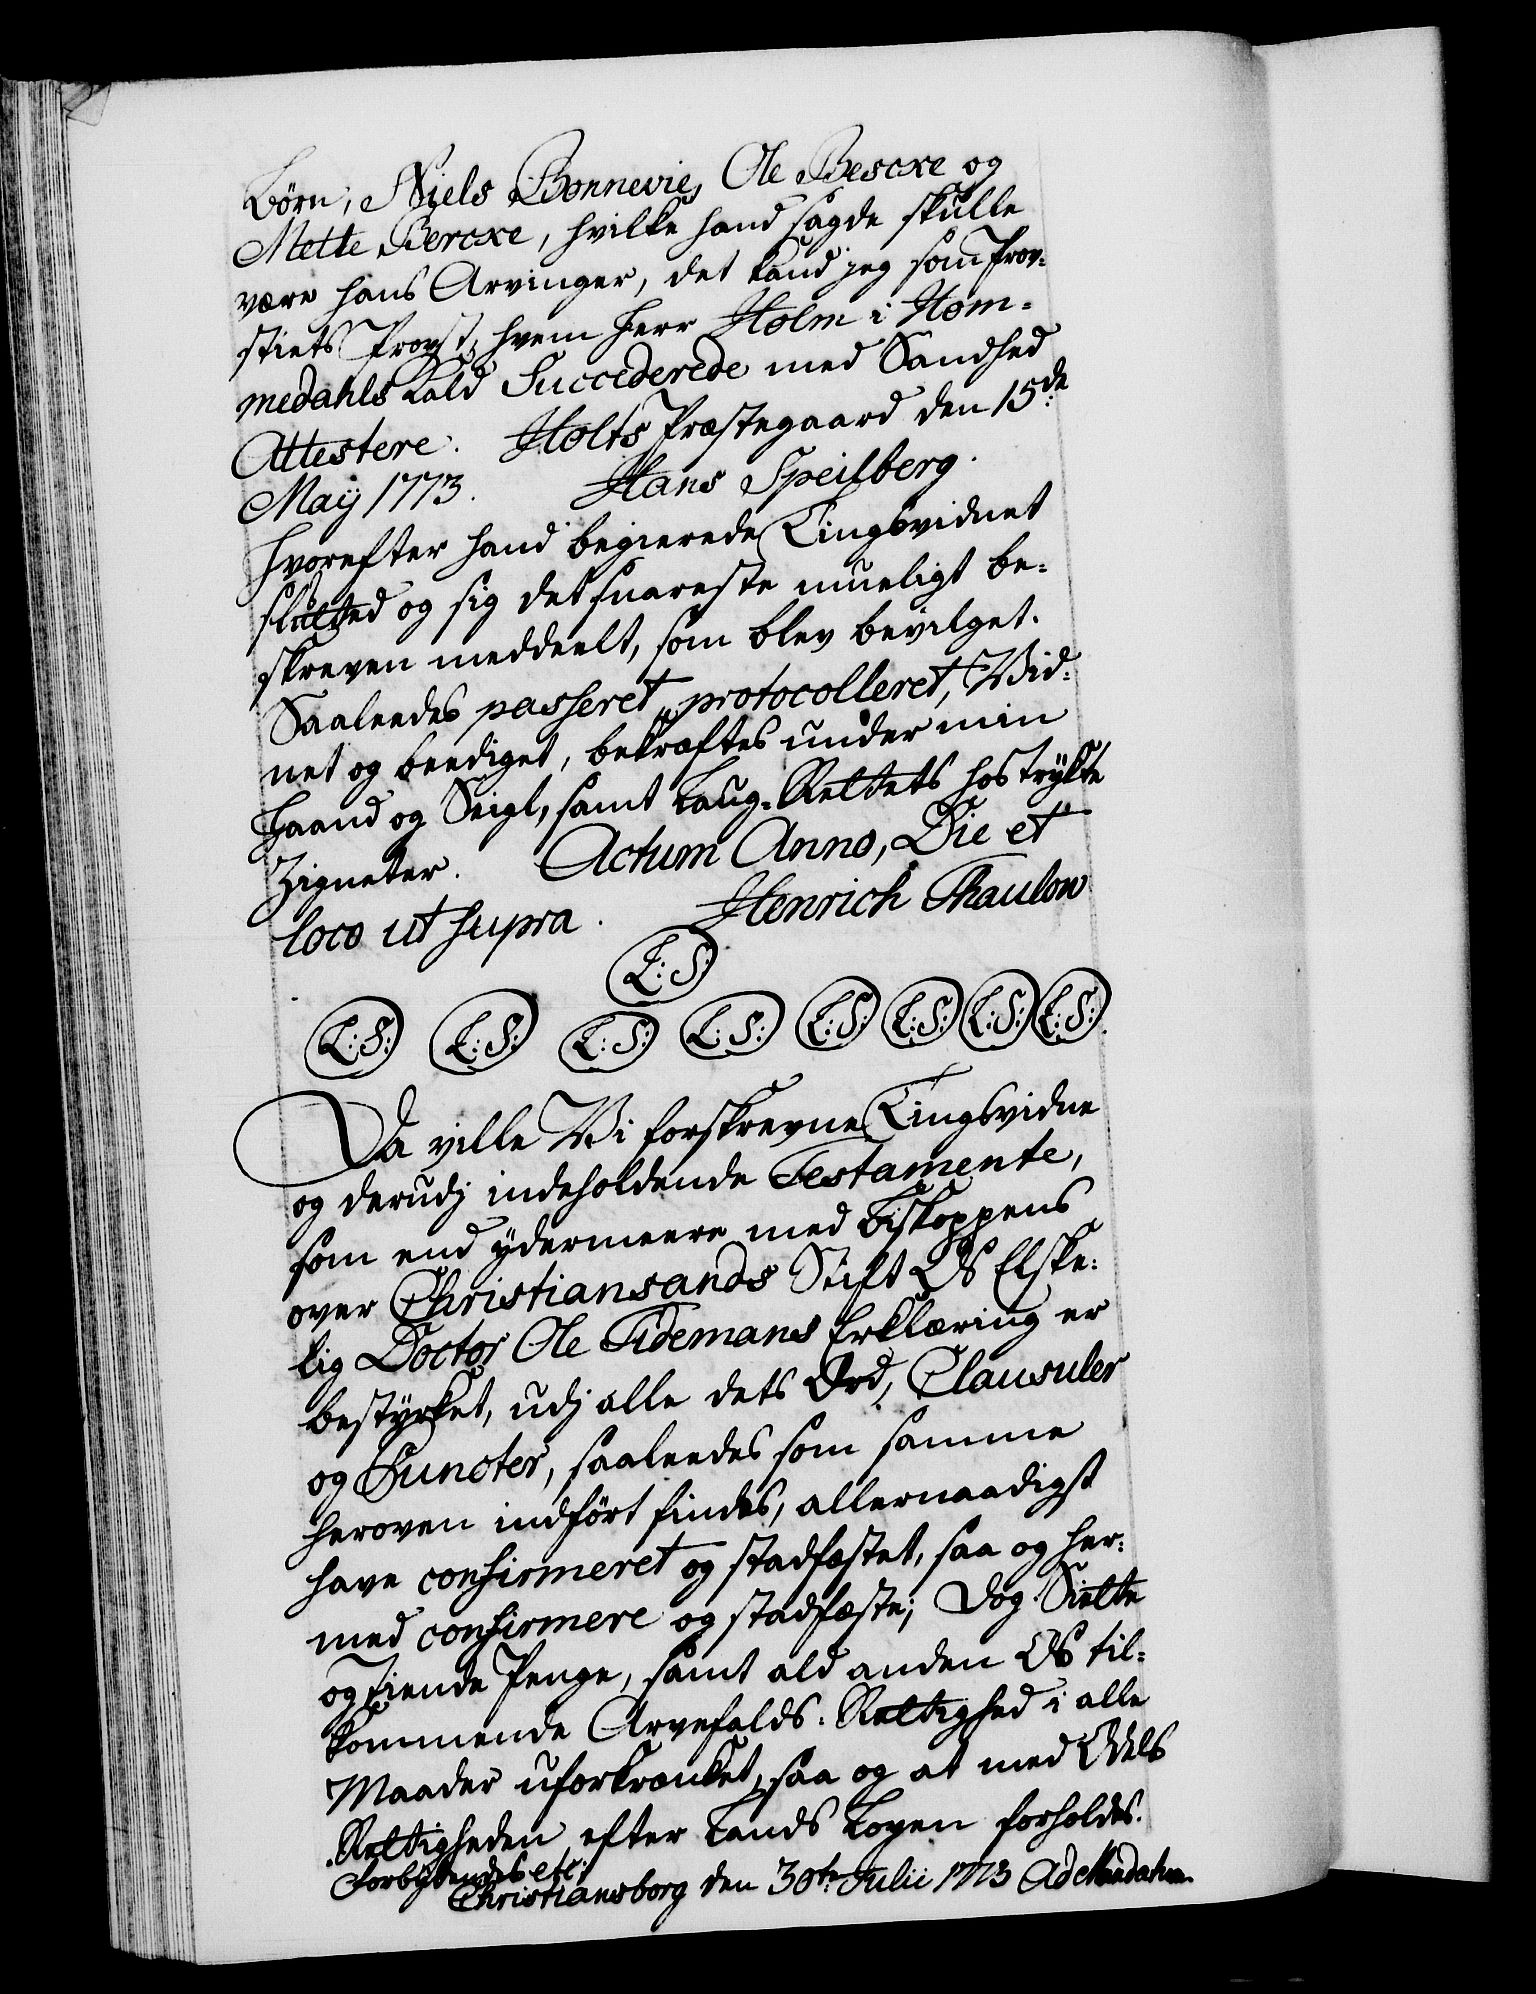 Børn, Niels Bonnevie, Ole Bescxe og
Mette Bercxe, hvilke hand sagde skulle
være hans Arvinger, det kand jeg som Prov-
stiets Provst, hvem Herr Holm i Hom-
medahls Kald Succederede med Sandhed
Attestere. Holts Præstegaard den 15de
Maij 1773. Hans Speilberg.
Hvorefter hand begierede Tingsvidnet
slutted og sig det snareste mueligt be-
skreven meddeelt, som blev bevilget.
Saaleedes passeret, protocolleret, Vid-
net og beediget, bekræftes under min
Haand og Seigl, samt Laug-Rettets hostrykte
Zigneter. Actum Anno, Die et
loco ut supra. Henrich Thaulow
L:S:
L:S: L:S: L:S: L:S: L:S: L:S: L:S: L:S:
Da ville Vi forskrevne Tingsvidne
og derudj indeholdende Testamente,
som end ydermeere med Biskoppens
over Christiansands Stift Os Elske-
lig Doctor Ole Tidemans Erklæring er
bestyrket, udj alle dets Ord, Clausuler
og Puncter, saaleedes som samme
heroven indført findes, allernaadigst
have confirmeret og stadfæstet, saa og her-
med confirmere og stadfæste; Dog Siette
og Tiende Penge, samt ald anden Os til-
kommende Arvefalds-Rettighed i alle
Maader uforkrænket, saa og at med Odels
Rettigheden efter Lands Loven forholdes.
Forbydendes etc:
Christiansborg den 30te Julii 1773 Ad Mandatum.